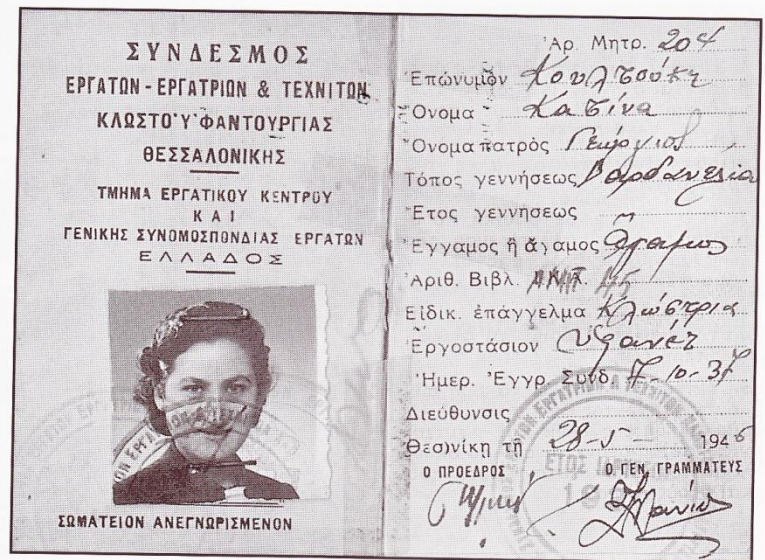 ΣΥΝΔΕΣΜΟΣ
ΕΡΓΑΤΩΝ - ΕΡΓΑΤΡΙΩΝ & ΤΕΧΝΙΤΩΝ
ΚΛΩΣΤΟ·Υ·ΦΑΝΤΟΥΡΓΙΑΣ
ΘΕΣΣΑΛΟΝΙΚΗΣ
ΤΜΗΜΑ ΕΡΓΑΤΙΚΟΥ ΚΕΝΤΡΟΥ
ΚΑΙ
ΓΕΝΙΚΗΣ ΣΥΝΟΜΟΣΠΟΝΔΙΑΣ ΕΡΓΑΤΩΝ
ΕΛΛΑΔΟΣ
ΣΩΜΑΤΕΙΟΝ ΑΝΕΓΝΩΡΙΣΜΕΝΟΝ
Ἀρ. Μητρ. 204
Ἐπώνυμον Κουλτσούκη
Ὄνομα Κατίνα
Ὄνομα πατρὸς Γεώργιος
Τόπος γεννήσεως Δαρδανελια
Ἔτος γεννήσεως
Ἔγγαμος ἢ ἄγαμος Ἄγαμος
Ἀριθ. Βιβλ.
Εἰδικ. ἐπάγγελμα Κλώστρια
Ἐργοστάσιον Υφανέτ
Ἡμερ. Ἐγγρ. Συνδ. 7-10-37
Διεύθυνσις
Θεσ)νίκη τῇ 28-5- 1946
Ο ΠΡΟΕΔΡΟΣ Ο ΓΕΝ. ΓΡΑΜΜΑΤΕΥΣ